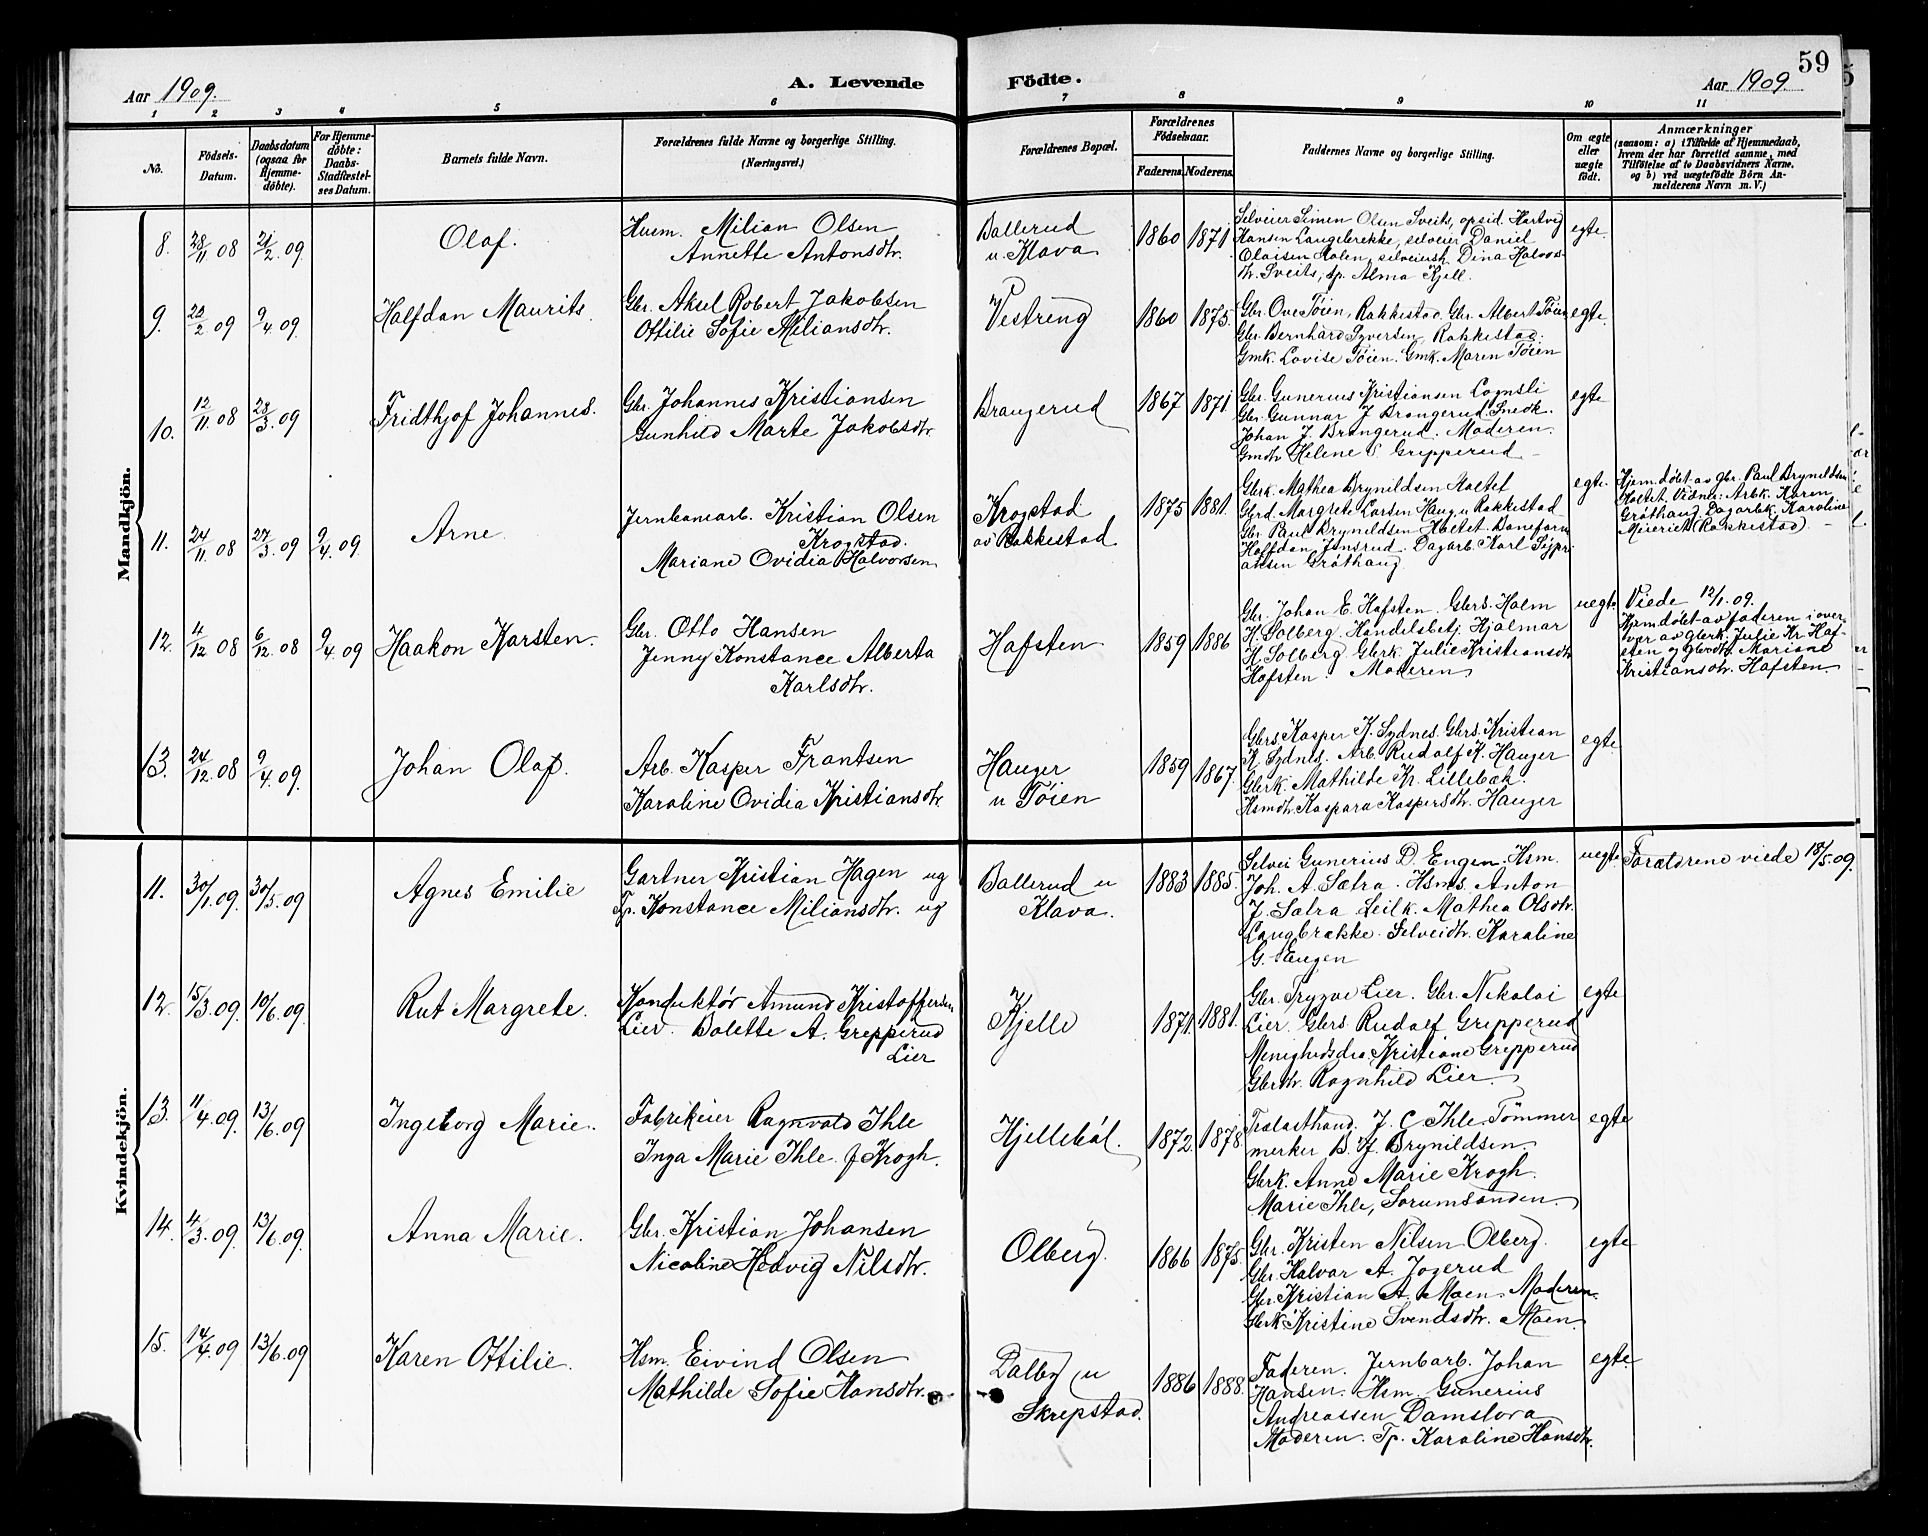 59
Aar 1909.
A. Levende Födte.
Aar 1909.
1 2 3 4 5 6 7 8 9 10 11
No.
Födsels-Datum.
Daabsdatum (ogsaa for Hjemme-döbte).
For Hjemme-döbte: Daabs-Stadfæstel-ses Datum.
Barnets fulde Navn.
Forældrenes fulde Navne og borgerlige Stilling.
(Næringsvei.)
Forældrenes Bopæl.
Forældrenes Födselsaar.
Faderens Moderens
Faddernes Navne og borgerlige Stilling.
Om ægte eller uægte födt.
Anmærkninger
(saasom: a) i Tilfælde af Hjemmedaab,
hvem der har forrettet samme, med
Tilföielse af to Daabsvidners Navne,
og b) ved uægtefödte Börn An-
melderens Navn m. V.)
Mandkjön.
8. 28/11 08 21/2 09. Olaf.
Husm. Milian Olsen
Annette Antonsdtr.
Ballerud
u. Klava
1860 1871
Selveier Simen Olsen Sveits, opsid. Hartvig
Hansen Langebrekke, selveier Daniel
Olaisen Holen, selveiersk. Dina Halvors-
dtr. Sveits, tp. Alma Kjell.
egte.
9. 20/2 09 9/4 09. Halfdan Maurits.
Gbr. Aksel Robert Jakobsen
Ottilie Sofie Miliansdtr.
Vestreng
1860 1875.
Gbr. Ove Töien, Rakkestad. Gbr. Albert Töien
Gbr. Bernhard Syversen, Rakkestad.
Gmk. Lovise Töien. Gmk. Maren Töien
egte.
10. 12/11 08 28/3 09 Fridthjof Johannes.
Gbr. Johannes Kristiansen
Gunhild Marte Jakobsdtr.
Brangerud
1867 1871
Gbr. Gunerius Kristiansen Lognsli
Gbr. Gunnar J. Brangerud. Snedk.
Johan J. Brangerud. Moderen.
Gmdtr. Helene S. Gripperud
egte
11. 24/11 08 27/3 09 9/4 09. Arne.
Jernbanearb. Kristian Olsen
Krogstad.
Mariane Ovidia Halvorsen
Krogstad
av Rakkestad
1875 1881.
Gbrk. Mathea Brynildsen Holtet
Gbrd. Margrete Larsen Haug u Rakkestad
Gbr. Paul Brynildsen Holtet. Baneform
Halfdan Jensrud. Dagarb. Karl Sypri
ansen Gråthaug
egte.
Hjemdöbt av gbr. Paul Brynildsen
Holtet. Vidner: Arbk. Karen
Gråthaug. Dagarbk. Karoline
Meieriet (Rakkestad).
12. 4/12 08 6/12 08 9/4 09 Haakon Karsten.
Gbr. Otto Hansen
Jenny Konstance Alberta
Karlsdtr.
Hafsten
1859 1886
Gbr. Johan E. Hafsten. Gbrs. Holm
H. Solberg. Handelsbetj. Hjalmar
H. Solberg. Gbrk. Julie Kristiansdtr
Hafsten. Moderen
uegte
Viede 12/1. 09.
Hjemdöbt av faderen i over-
vær av gbrk. Julie Kr. Haf-
sten og gbrdtr. Mariane
Kristiansdtr. Hafsten.
13. 24/12. 08 9/4 09. Johan Olaf.
Arb. Kasper Frantsen
Karoline Ovidia Kristiansdtr.
Hauger
u Töien
1859 1867.
Gbrs. Kasper K. Sydnes. Gbrs. Kristian
K. Sydnes. Arb. Rudolf K. Hauger
Gbrk. Mathilde Kr. Lillebæk.
Hsmdtr. Kaspara Kaspersdtr. Hauger
egte.
Kvindekjön.
11. 30/1. 09. 30/5. 09 Agnes Emilie
Gartner Kristian Hagen ug
Tp. Konstance Miliansdtr. ug
Ballerud u
Klava.
1883 1885.
Selvei Gunerius D. Engen. Hsm.
Joh. A. Sætra. Hsms. Anton
J. Sætra. Leilk. Mathea Olsdtr.
Langbrække. Selveidtr. Karoline
G. Engen
uegte
Forældrene viede 18/5. 09.
12. 15/3. 09. 10/6. 09. Rut Margrete.
Konduktör Amund Kristoffersen
Lier. Bolette A. Gripperud
Lier
Kjelle
1871 1881.
Gbr. Trygve Lier. Gbr. Nikolai
Lier. Gbrs. Rudolf Gripperud
Menighedsdia. Kristiane Gripperud
Gbrdtr. Ragnhild Lier.
egte
13. 11/4. 09. 13/6. 09 Ingeborg Marie.
Fabrikeier Ragnvald Ihle
Inga Marie Ihle f. Krogh.
Kjelleböl.
1872. 1878.
Trælasthand. J. C. Ihle. Tömmer
merker B. H. Brynildsen.
Gbrk. Anne Marie Krogh.
Marie Ihle, Sörumsanden.
egte
14. 4/3. 09. 13/6. 09. Anna Marie.
Gbr. Kristian Johansen
Nicoline Hedvig Nilsdtr.
Olberg.
1866 1875.
Gbr. Kristen Nilsen Olberg.
Gbr. Halvor A. Jogerud
Gbr. Kristian A. Moen. Moderen.
Gbrk. Kristine Svendsdtr. Moen.
egte
15. 14/4. 09 13/6. 09 Karen Ottilie.
Hsm. Eivind Olsen
Mathilde Sofie Hansdtr.
Dalby u
Skrepstad.
1886 1888.
Faderen. Jernbarb. Johan
Hansen. Hsm. Gunerius
Andreassen Damslora
Moderen. Tp. Karoline Hansdtr.
egte